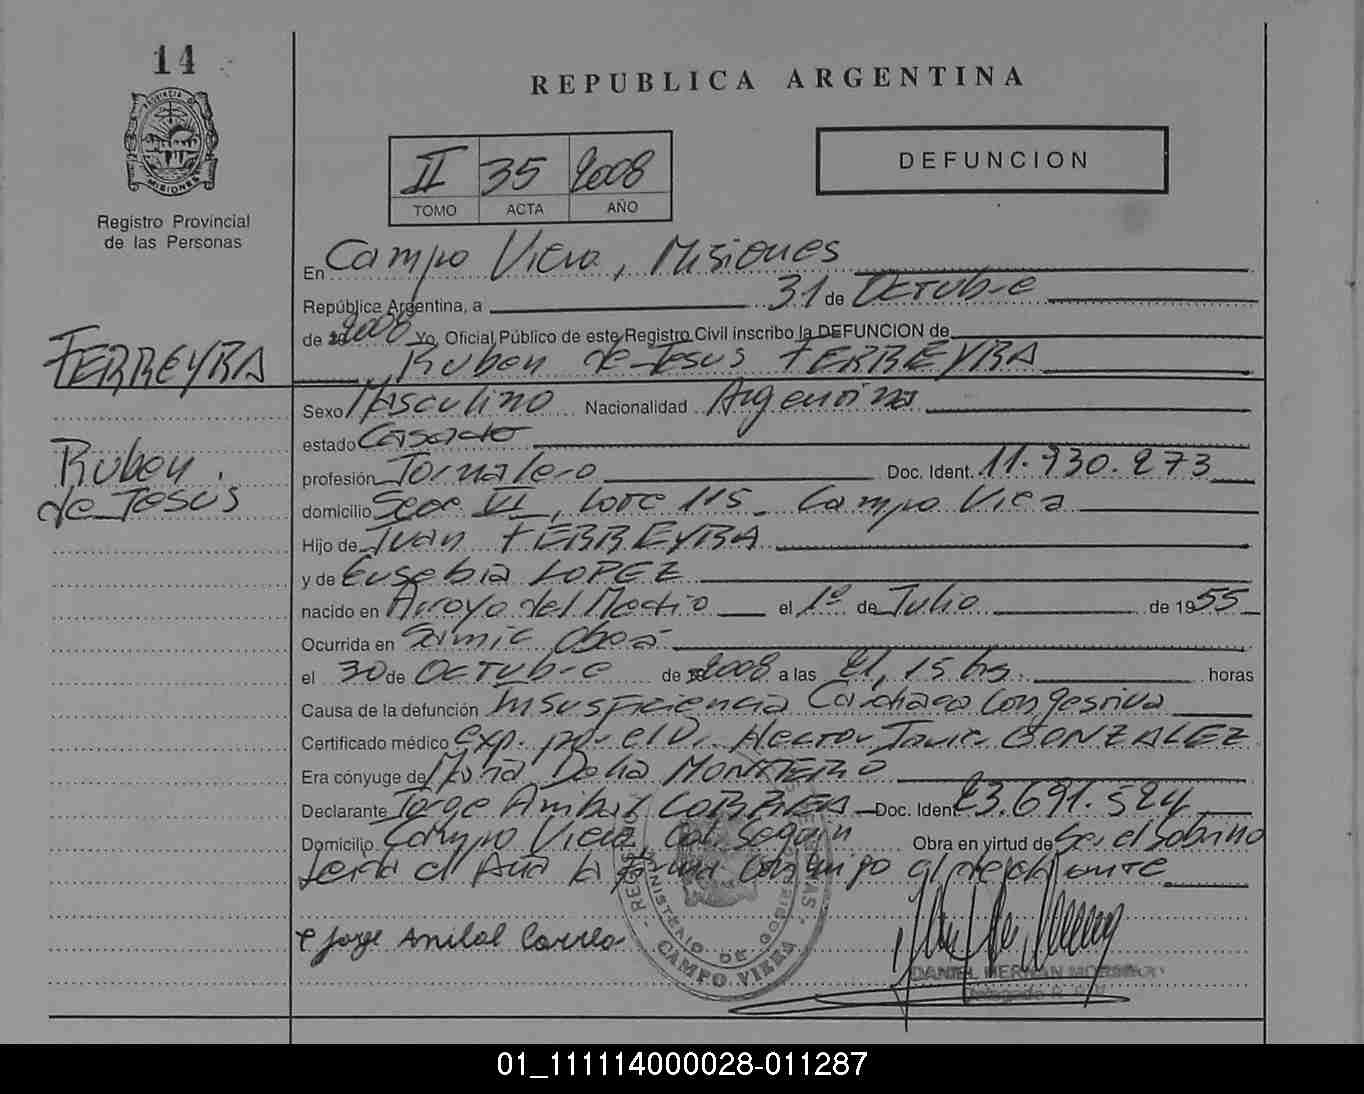 14
PROVINCIA DE
MISIONES
Registro Provincial
de las Personas
REPUBLICA ARGENTINA
II 35 2008
TOMO ACTA AÑO
DEFUNCION
En Campo Viera, Misiones
República Argentina, a 31 de Octubre
de 2008 Yo, Oficial Público de este Registro Civil inscribo la DEFUNCION de
Ruben de Jesus FERREYRA
FERREYRA
Ruben
de Jesus
Sexo Masculino Nacionalidad Argentina
estado Casado
profesión Jornalero Doc. Ident. 11.930.273
domicilio Secc VI, Lote 115 - Campo Viera
Hijo de Juan FERREYRA
y de Eusebia LOPEZ
nacido en Arroyo del Medio el 1º de Julio de 1955
Ocurrida en Samic Oberá
el 30 de Octubre de 2008 a las 21,15 hs horas
Causa de la defunción Insusficiencia Cardiaca Congestiva
Certificado médico exp. por el D. Hector Javier GONZALEZ
Era cónyuge de Maria Delia MONTERO
Declarante Jorge Anibal CORREA Doc. Ident 23.691.524
Domicilio Campo Viera Col. Seguin Obra en virtud de Ser el Sobrino
Leida el Acta la firma conmigo el declarante
Jorge Anibal Correa
MINISTERIO DE GOBIERNO
CAMPO VIERA
DANIEL HERNAN
Delegado R.
01_111114000028-011287